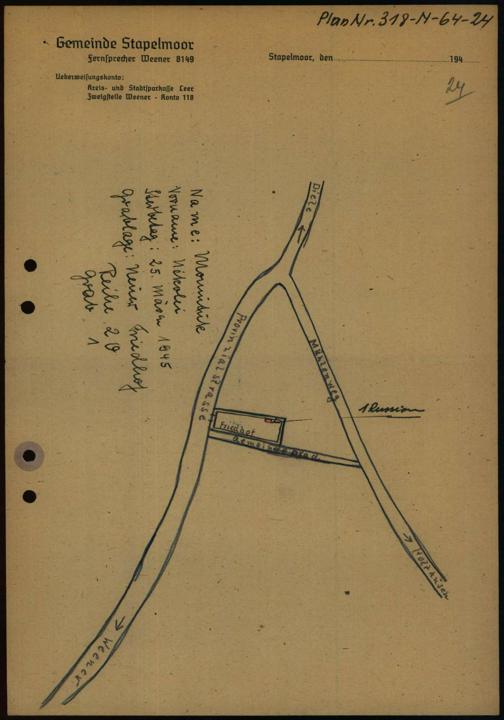 Plan Nr. 318-N-64-24
Gemeinde Stapelmoor
Fernsprecher Weener 8149
Stapelmoor, den 194
Ueberweisungskonto:
Kreis- und Stadtsparkasse Leer
Zweigstelle Weener - Konto 118
24
Name:
Vorname: Nikolei
Sterbetag: 25. März 1945
Grablage: Neuer Friedhof
Reihe 20
Grab 1
Diele
Provinzialstrasse
Mühlenweg
1 Russian
Friedhof
Gemeindepfad
Holthusen
Weener